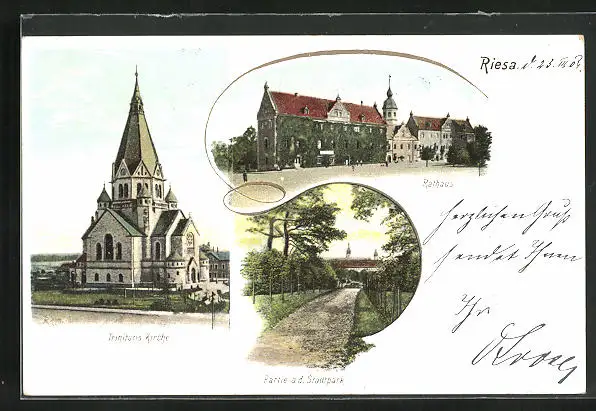 Riesa. d. 23. III 04.
Rathaus
herzlichen Gruß
sendet Ihnen
Ihr
Trinitatis Kirche
Partie a. d. Stadtpark